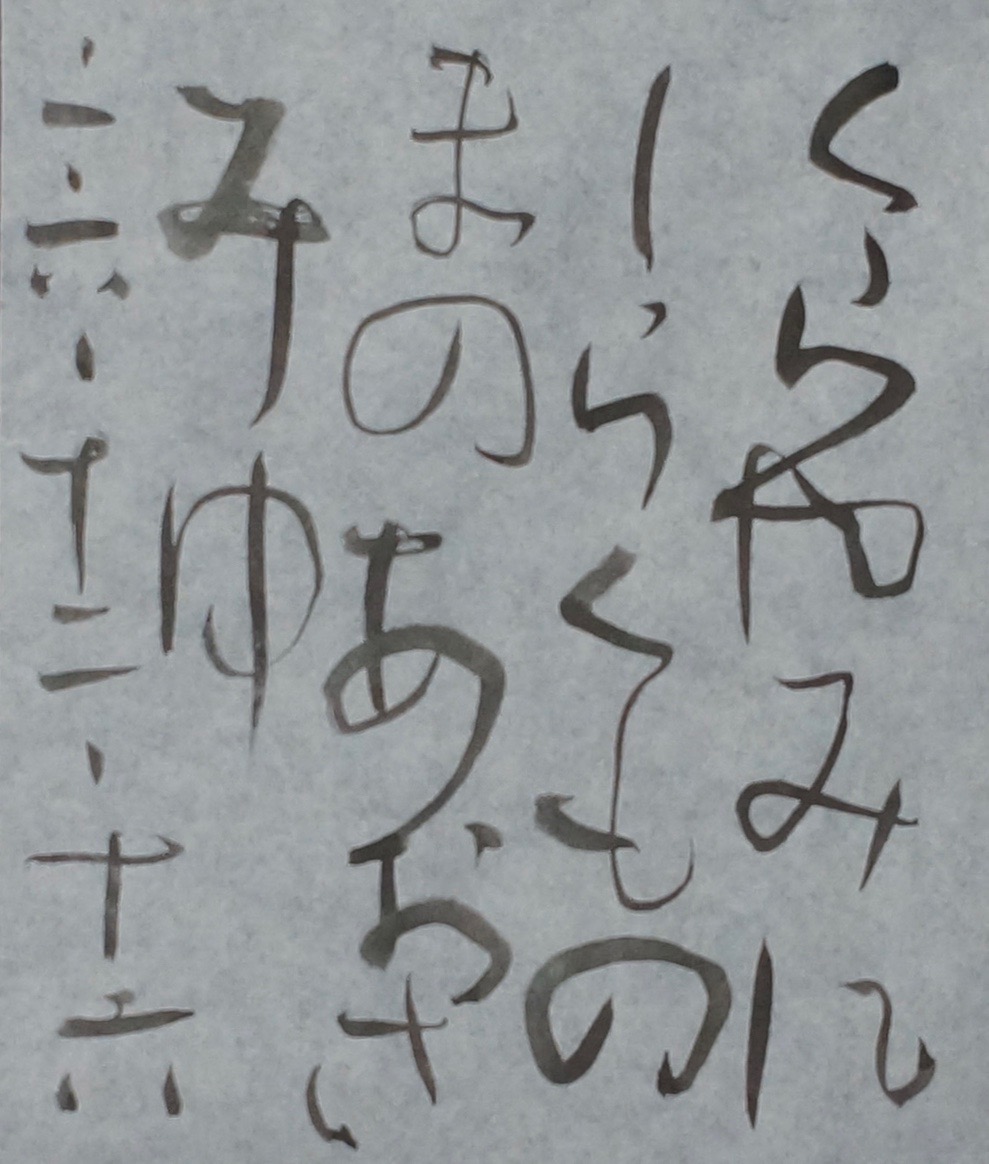 くらやみに
しらくもの
まのあおさ
みゆ
'一六・十二・十六